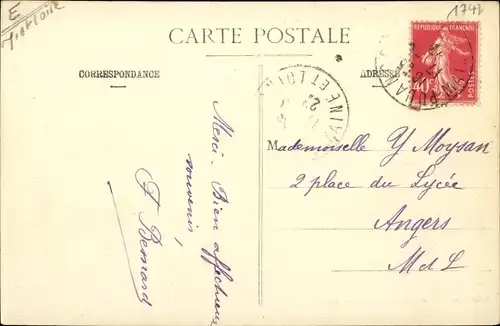 1747
E
CARTE POSTALE
CORRESPONDANCE
ADRESSE
REPUBLIQUE FRANÇAISE
40
INE ET LOIR
Merci. Bien affectueux
souvenirs,
F Besnard
Mademoiselle Y Moysan
2 place du Lycée
Angers
M et L